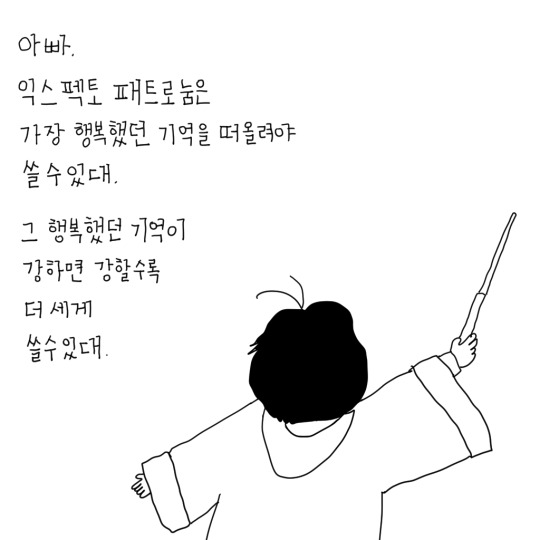 아빠.
익스펙토 패트로눔은
가장 행복했던 기억을 떠올려야
쓸 수 있대.
그 행복했던 기억이
강하면 강할수록
더 세게
쓸 수 있대.